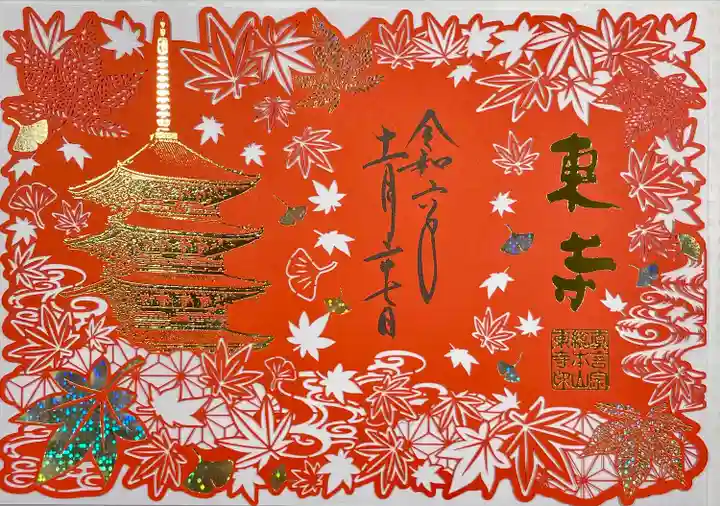 東寺
令和六年
十一月二十七日
真言宗
総本山
東寺印